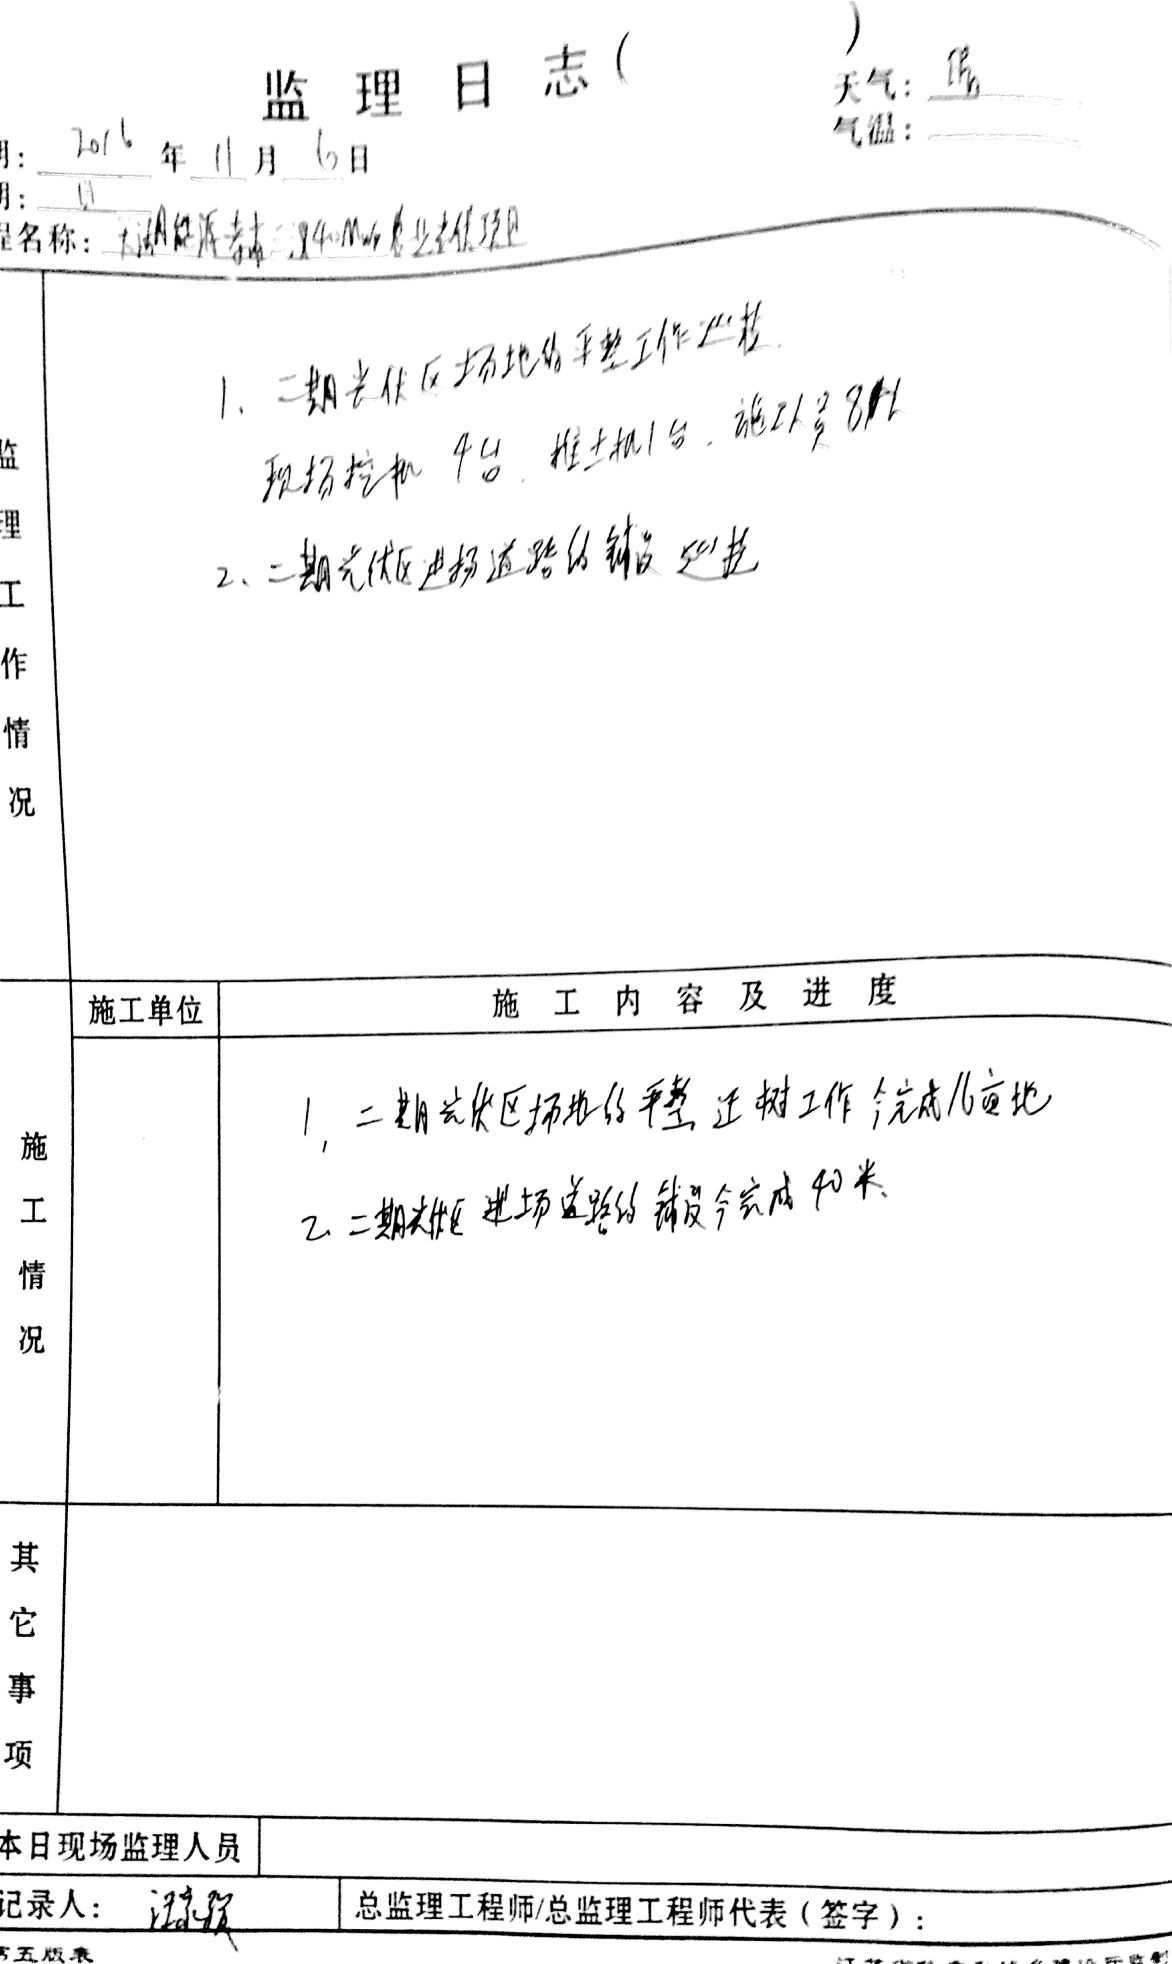 监理日志（ ）
天气：晴
气温：
期：2016年11月6日
期：日
程名称：太湖能源 40MWp农业光伏项目
监理工作情况
1、二期光伏区场地的平整工作巡检
现场挖机4台、推土机1台、施工人员8人
2、二期光伏区进场道路的铺设巡检
施工单位 施工内容及进度
施工情况
1、二期光伏区场地的平整迁树工作今完成16亩地
2、二期光伏区进场道路的铺设今完成40米、
其它事项
本日现场监理人员
记录人：
总监理工程师/总监理工程师代表（签字）：
第五版表